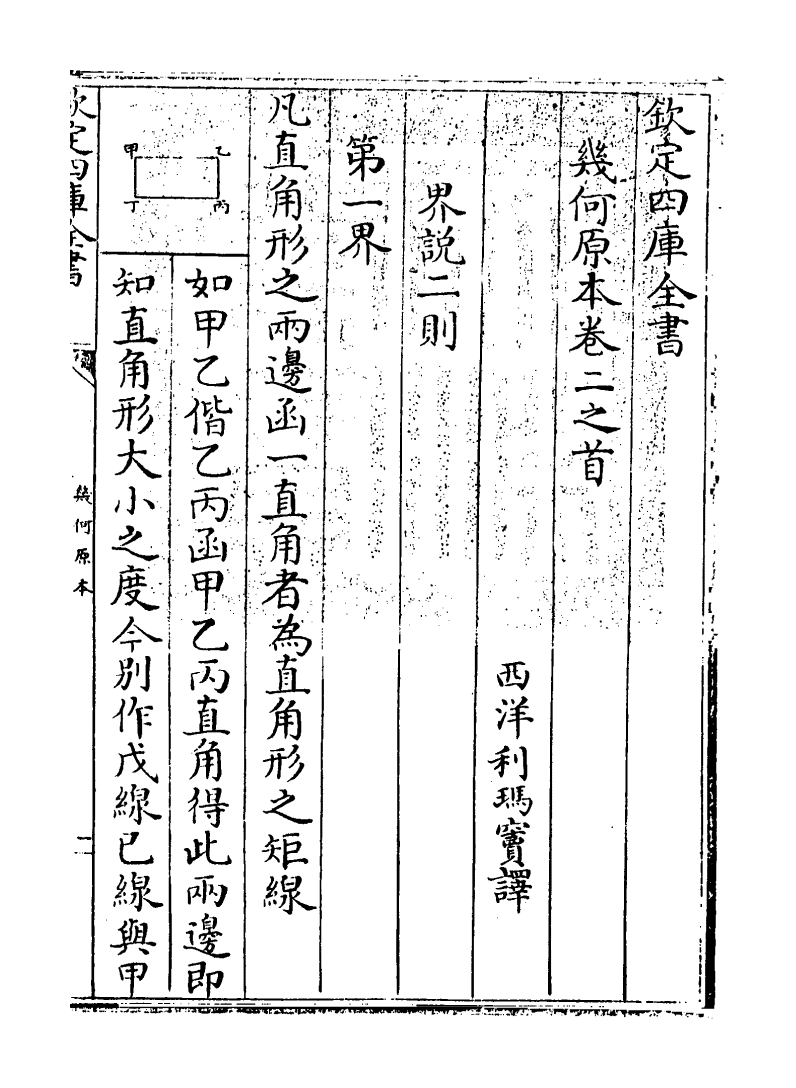 欽定四庫全書
幾何原本卷二之首
西洋利瑪竇譯
界説二則
第一界
凡直角形之兩邊函一直角者為直角形之矩線
甲 乙
丁 丙
如甲乙偕乙丙函甲乙丙直角得此兩邊即
知直角形大小之度今别作戊線已線與甲
欽定四庫全書
幾何原本